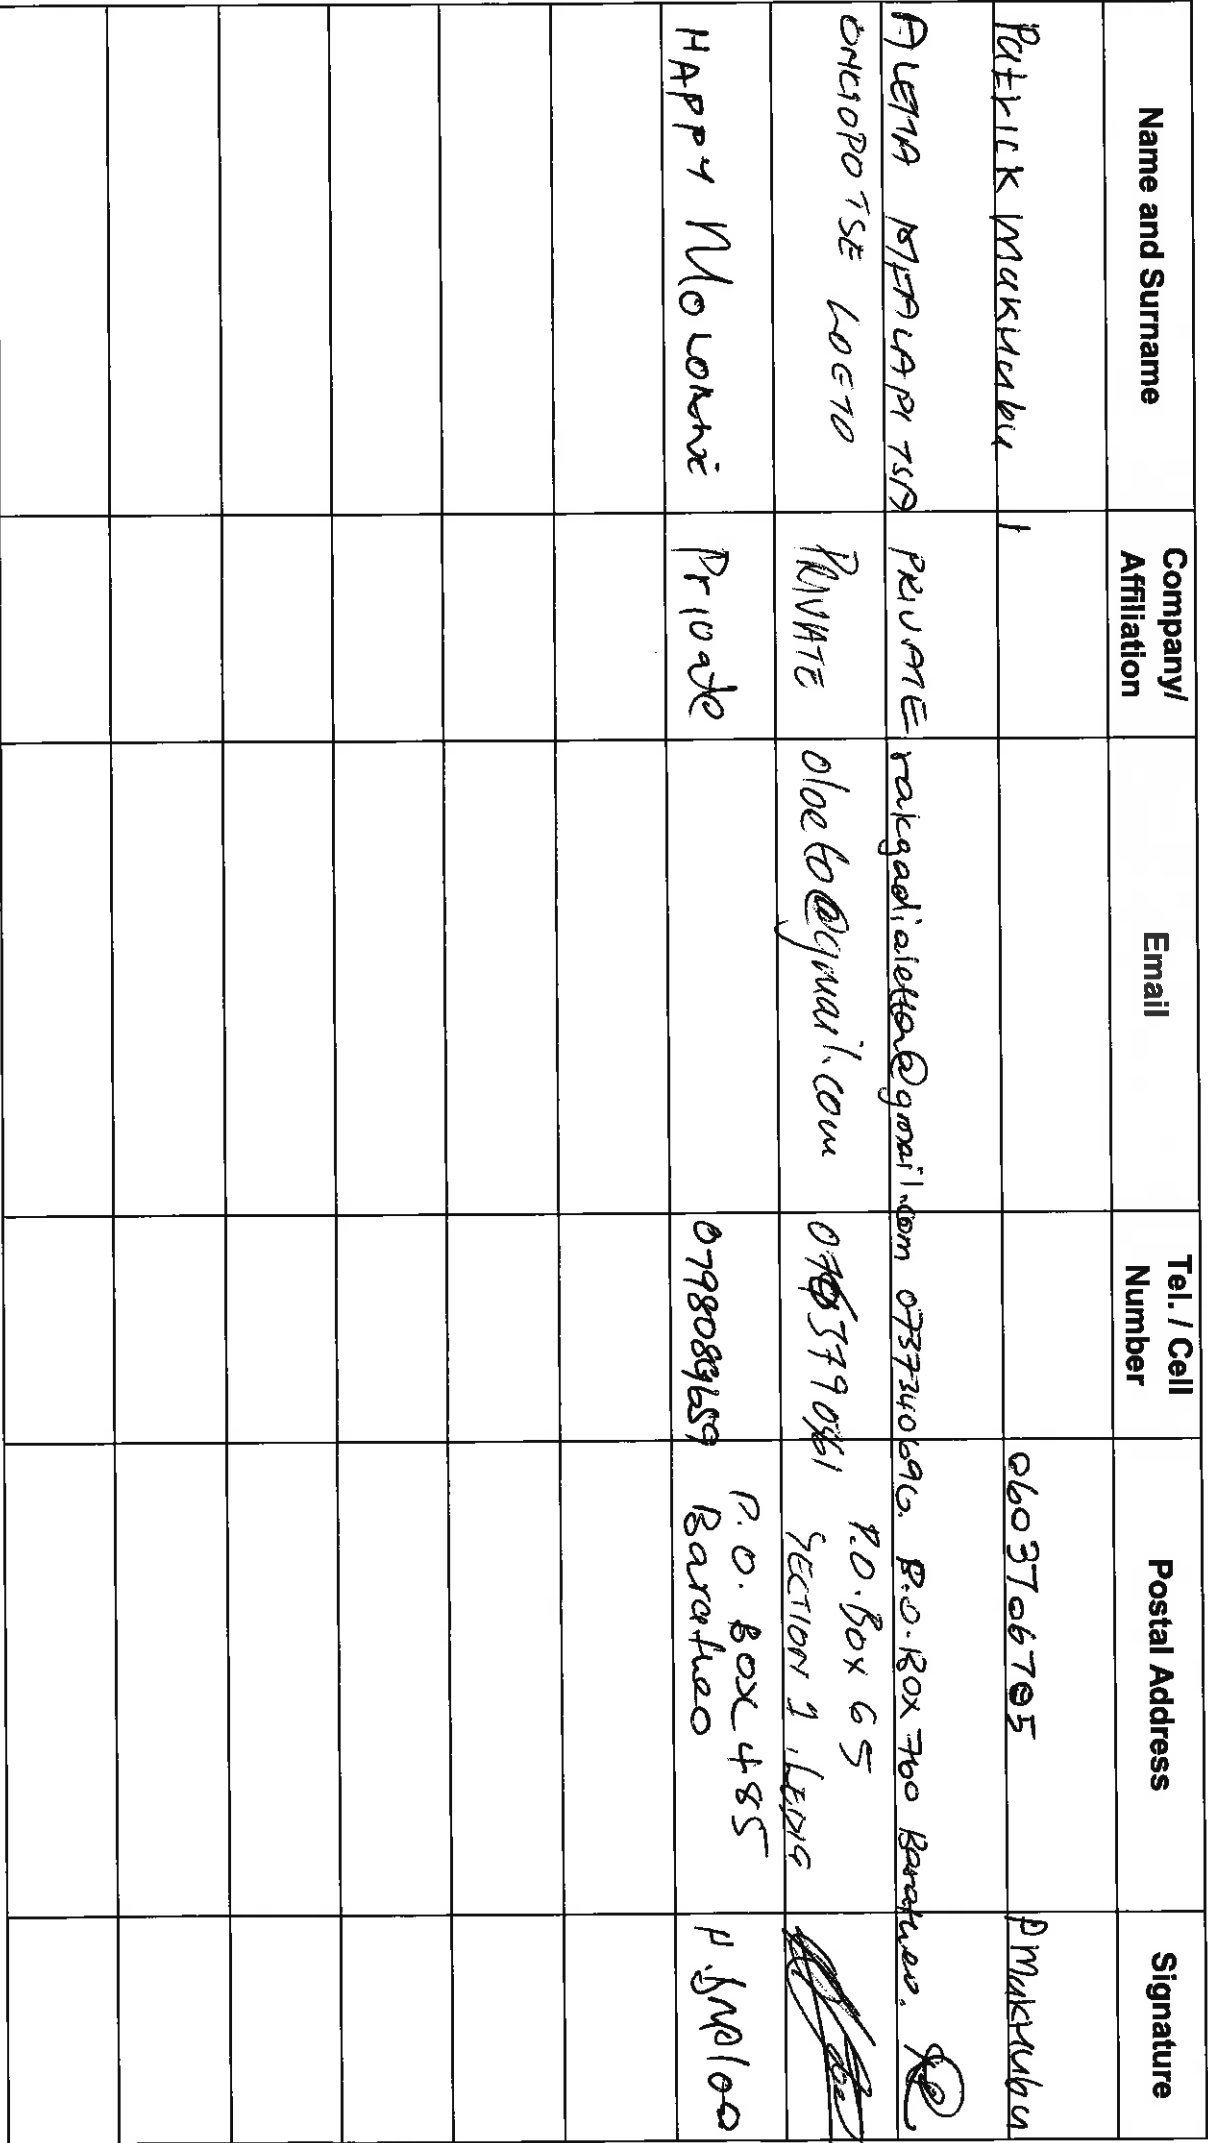 Name and Surname Company/ Affiliation Email Tel. / Cell Number Postal Address Signature
Patrick Makhubu / 0603706705 PMakhubu
ALETTA PRIVATE rakgadialetta@gmail.com 0737340696. P.O.Box 760 Baratheo.
ONGOPOTSE LOETO PRIVATE oloeto@gmail.com P.O.Box 65
SECTION 1, LEDIG
HAPPY Private P.O. Box 485
Baratheo